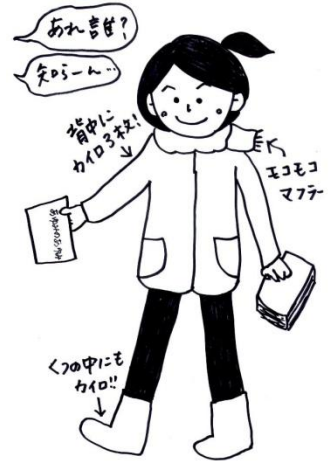 あれ誰？
知らーん…
背中に
カイロ3枚！
モコモコ
マフラー
くつの中にも
カイロ!!